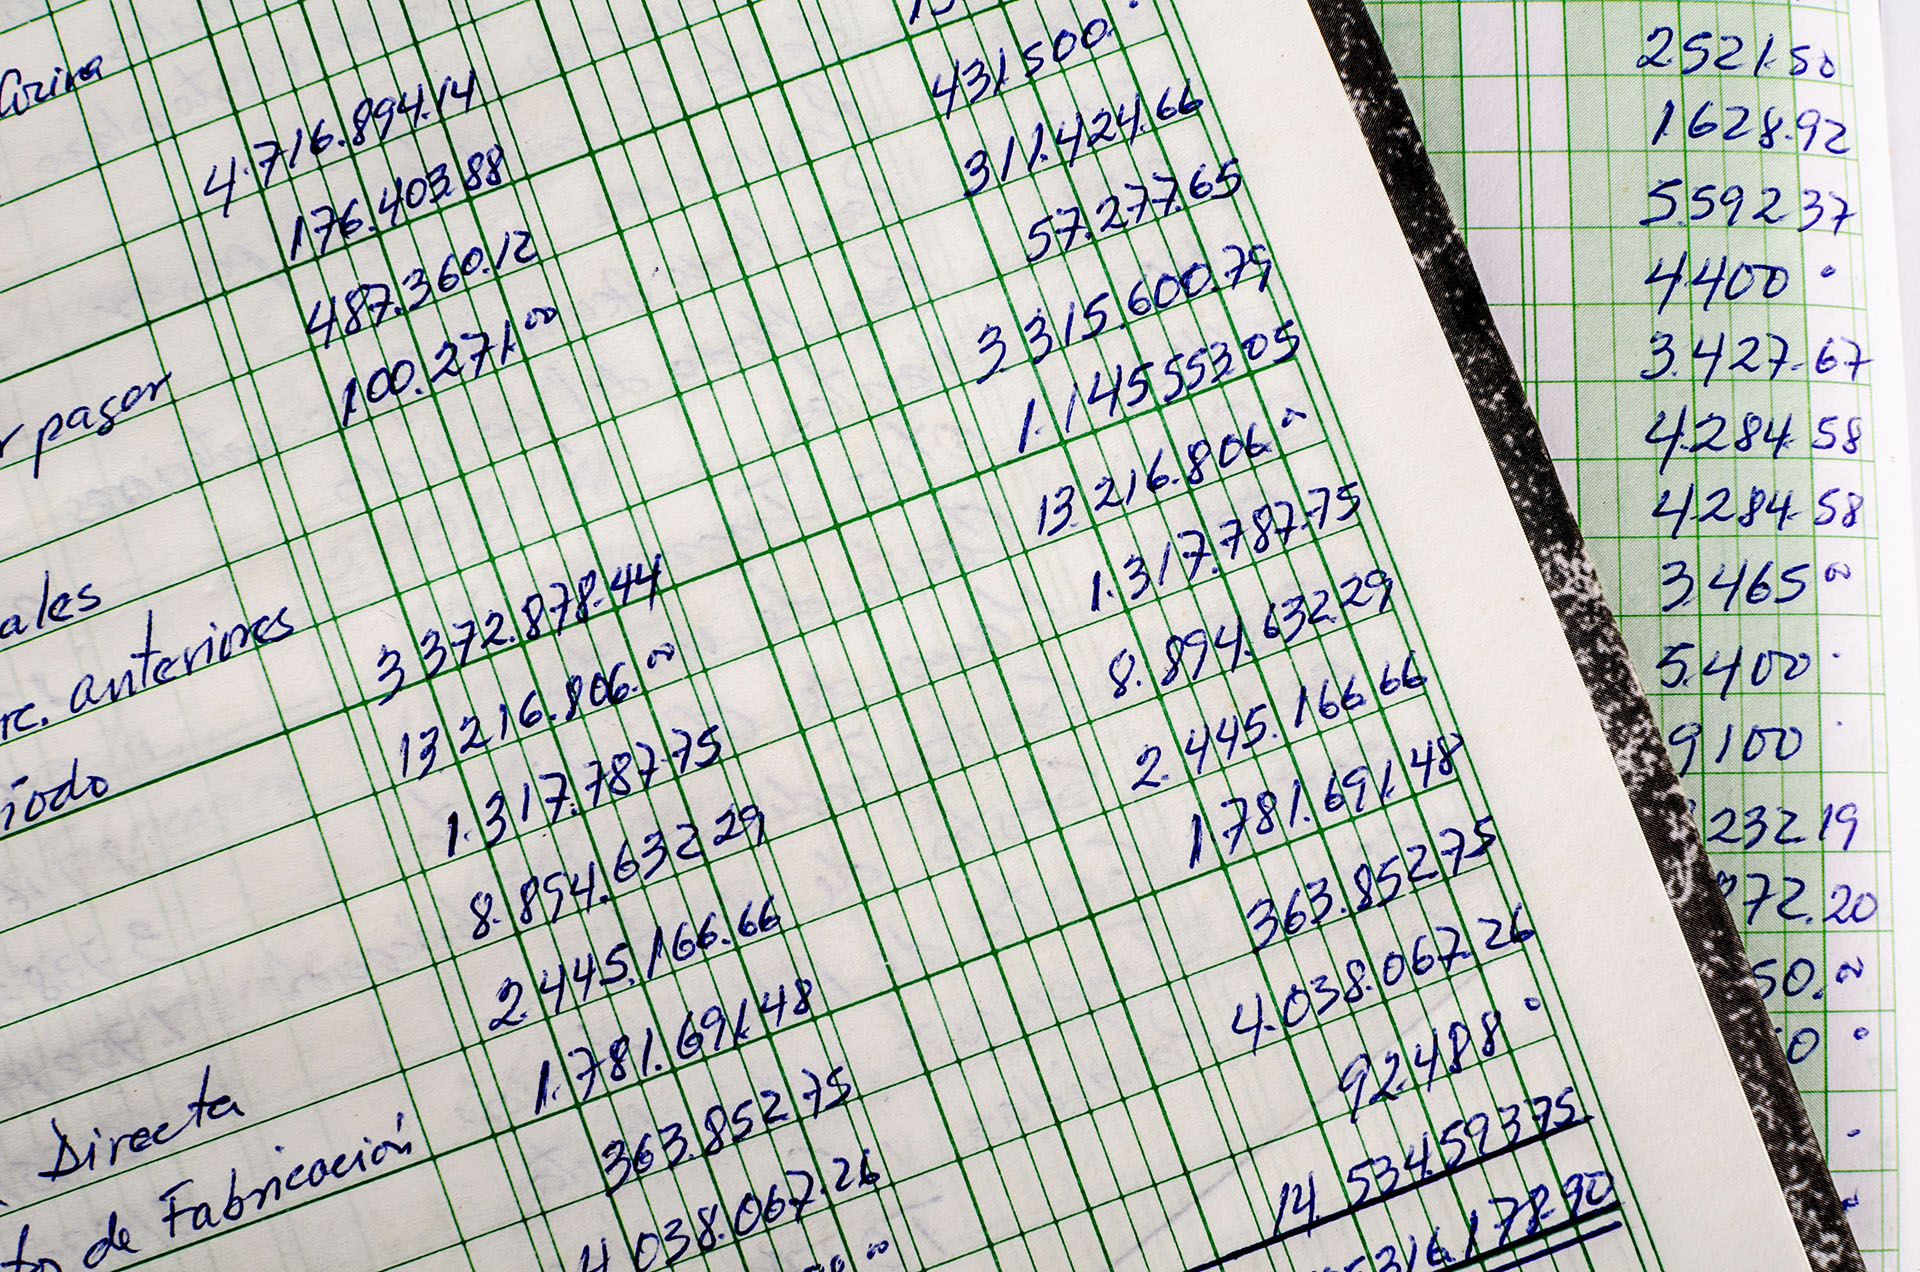 Corina
4.716.894.14
176.403.88
r pagar
487.360.12
100.271.00
ales
rc. anteriores
3.372.878.44
íodo
13.216.806.00
1.317.787.75
8.894.632.29
2.445.166.66
1.781.691.48
Directa
363.852.75
to de Fabricación
4.038.067.26
431.500.
311.424.66
57.277.65
3.315.600.79
1.145.553.05
13.216.806
1.317.787.75
8.894.632.29
2.445.166.66
1.781.691.48
363.852.75
4.038.067.26
92.488
14.534.593.75
5316.178.90
2.521.50
1.628.92
5.592.37
4.400
3.427.67
4.284.58
4.284.58
3.465
5.400
9.100
232.19
72.20
50.
0